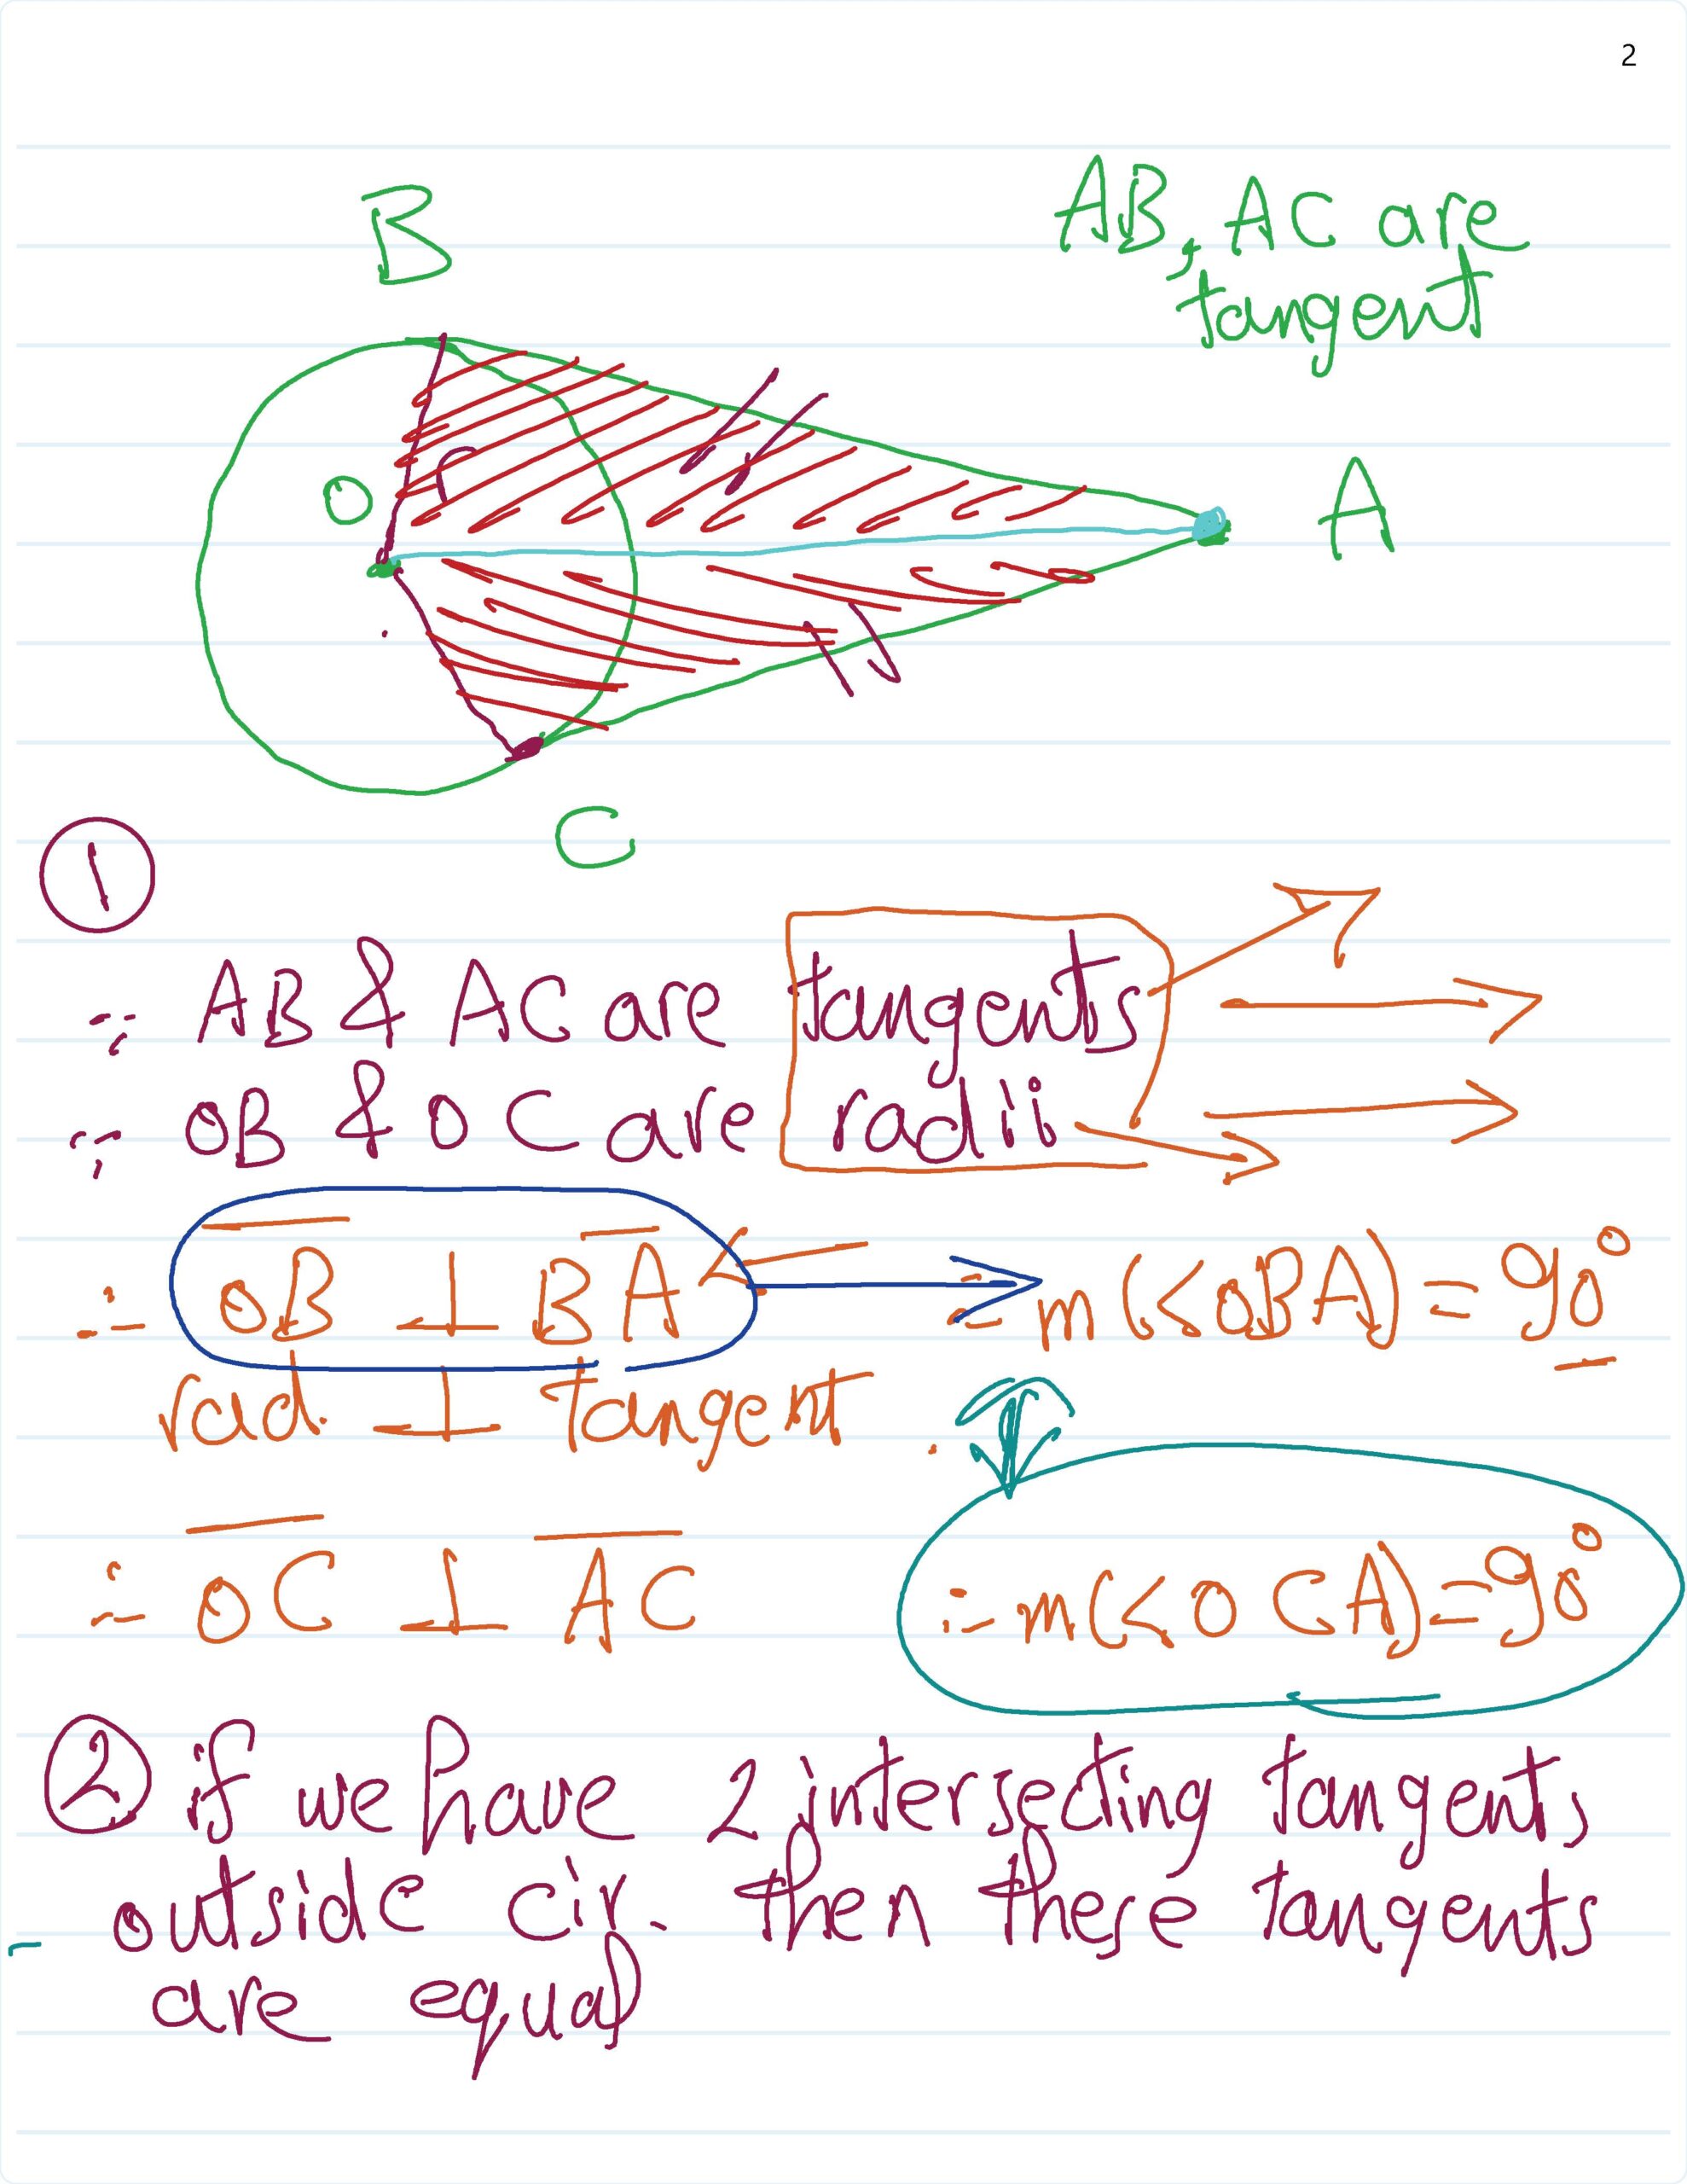 2
AB, AC are
tangent
B
O
A
C
1
∵ AB & AC are tangents
∵ OB & OC are radii
∴ OB ⊥ BA ∴ m(<OBA) = 90°
rad. ⊥ tangent
∴ OC ⊥ AC ∴ m(<OCA) = 90°
2 if we have 2 intersecting tangents
outside cir. then these tangents
are equal